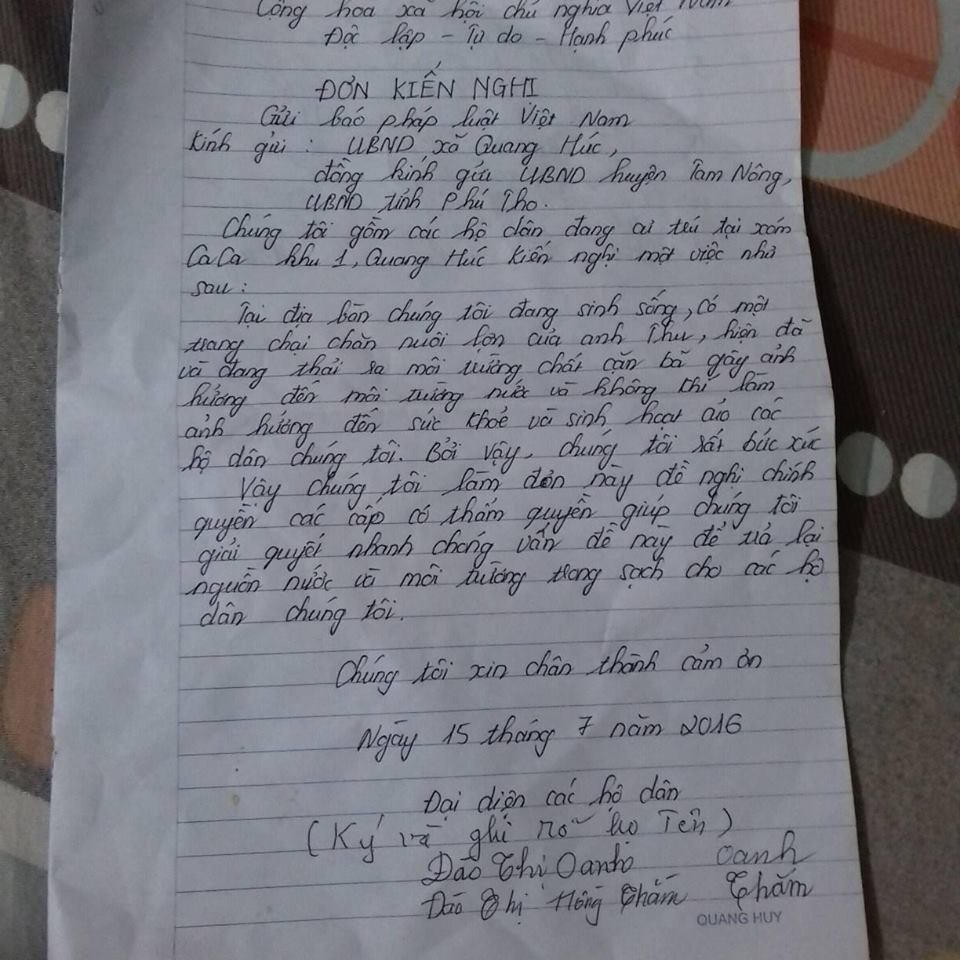 Cộng hoa xã hội chủ nghĩa Việt Nam
Độc lập - Tự do - Hạnh phúc
ĐƠN KIẾN NGHỊ
Gửi báo pháp luật Việt Nam
Kính gửi : UBND xã Quang Húc,
đồng kính gửi UBND huyện Tam Nông,
UBND tỉnh Phú Thọ.
Chúng tôi gồm các hộ dân đang cư trú tại xóm
CaCa khu 1, Quang Húc kiến nghị một việc như
sau :
Tại địa bàn chúng tôi đang sinh sống, có một
trang chại chăn nuôi lợn của anh Thư, hiện đã
và đang thải ra môi trường chất cặn bã gây ảnh
hưởng đến môi trường nước và không khí làm
ảnh hưởng đến sức khỏe và sinh hoạt của các
hộ dân chúng tôi. Bởi vậy, chúng tôi rất bức xúc
Vậy chúng tôi làm đơn này đề nghị chính
quyền các cấp có thẩm quyền giúp chúng tôi
giải quyết nhanh chóng vấn đề này để trả lại
nguồn nước và môi trường trong sạch cho các hộ
dân chúng tôi.
Chúng tôi xin chân thành cảm ơn
Ngày 15 tháng 7 năm 2016
Đại diện các hộ dân
(Ký và ghi rõ họ Tên)
Đào Thị Oanh Oanh
Đào Thị Hồng Thắm Thắm
QUANG HUY